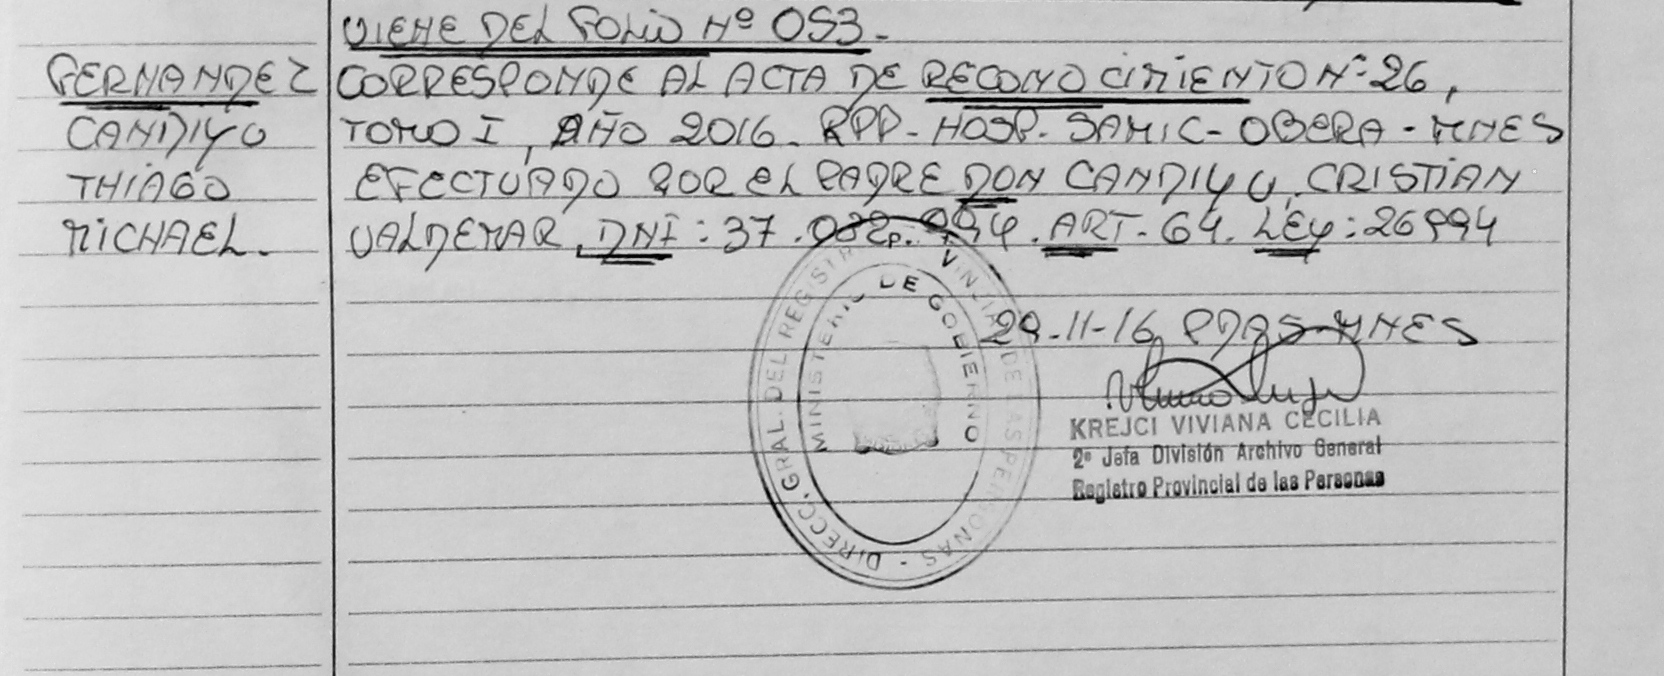 VIENE DEL FOLIO Nº 053.-
FERNANDEZ CORRESPONDE AL ACTA DE RECONOCIMIENTO Nº 26,
CANDIYU TOMO I, AÑO 2016. RPP- HOSP. SAMIC- OBERA - MNES
THIAGO EFECTUADO POR EL PADRE DON CANDIYU, CRISTIAN
MICHAEL. VALDEMAR, DNI: 37. . ART. 64. LEY: 26994
29-11-16, PDAS-MNES
KREJCI VIVIANA CECILIA
2º Jefa División Archivo General
Registro Provincial de las Personas
DIRECC. GRAL. DEL REGISTR VINCIAL DE LAS PERSONAS -
MINISTERIO DE GOBIERNO